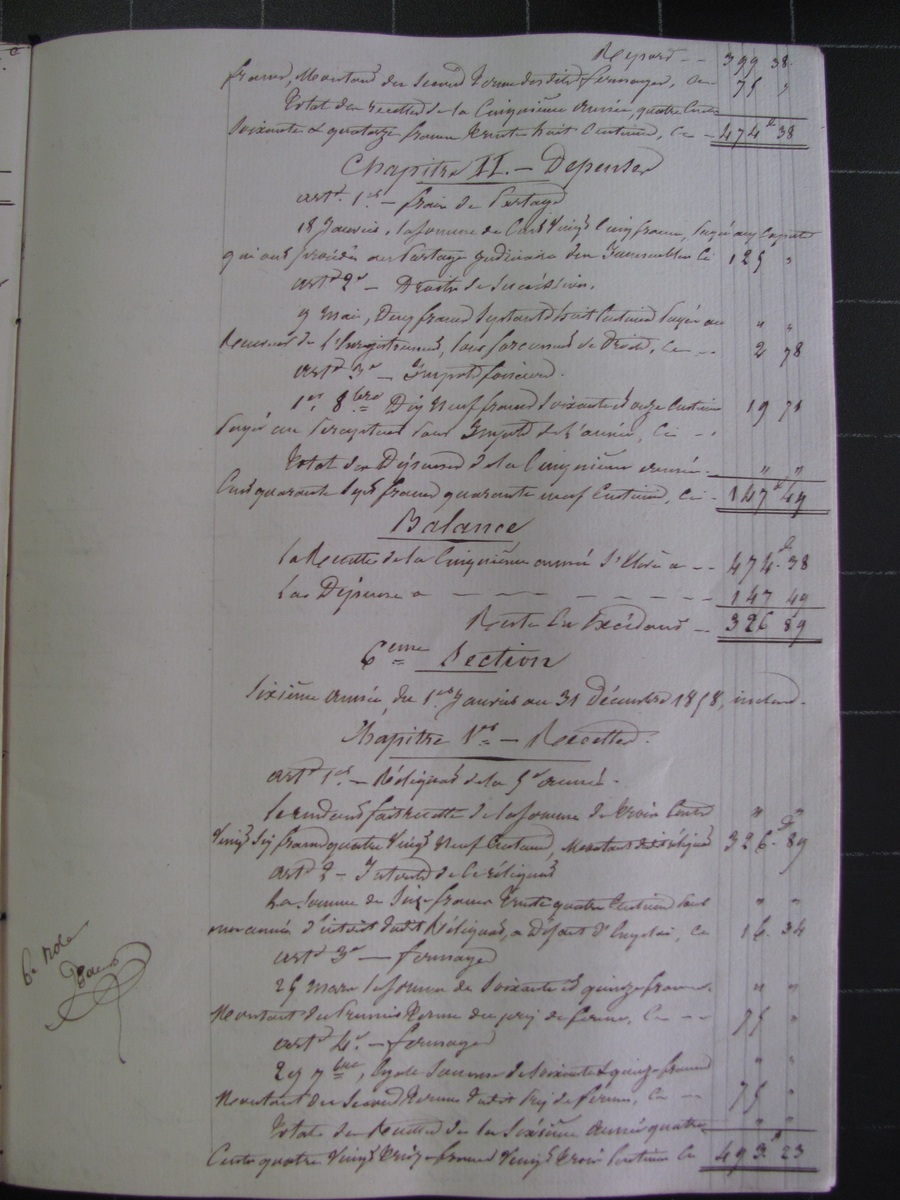 Report -- 399 38.
francs, Montant du second terme desdits fermages, Ci 75 "
Total des recettes de la Cinquième année, quatre Cent
Soixante & quatorze francs trente huit Centimes, Ci - 474f 38
Chapitre II. - Depenses
art. 1er - frais de Partage
18 Janvier, la somme de Cent Vingt Cinq francs, payée aux Experts
qui ont procédé au Partage judiciaire des Immeubles Ci 125 "
artc 2e - Droits de Succession.
9 Mai, Deux francs Soixante dix huit Centimes payés au " "
Receveur de l'Enregistrement, pour Droits, Ci -- 2 78
artc 3e - Impôt foncier.
1er 8bre Dix Neuf francs Soixante et onze Centimes 19 71
payés au Percepteur pour Impôts de l'année, Ci -
Total des Dépenses de la Cinquième année - " "
Cent quarante Sept francs quarante neuf Centimes, Ci - 147f 49
Balance
La Recette de la Cinquième année S'élève à -- 474f 38
La Dépense à - - - - - - 147 49
Reste en Excédant - 326 89
6eme Section
Sixième année, du 1er Janvier au 31 Décembre 1858, inclus.
Chapitre 1er - Recettes.
artc 1er - Réliquat de la 5e année.
Le rendant fait recette de la somme de trois Cent " "
Vingt Six francs quatre Vingt Neuf Centimes, Montant dudit réliquat 326f 89
artc 2 - Intérêts de ce réliquat
La somme de Seize francs trente quatre Centimes pour " "
une année d'intérêt dudit Réliquat, à Défaut d'Emploi, Ci 16. 34
artc 3e - fermages
25 Mars la somme de Soixante et quinze francs. " "
Montant du Premier terme du prix de ferme, Ci -- 75 "
artc 4e. - fermages
29 7bre, Pareille Somme de Soixante & quinze francs " "
Montant du Second terme dudit Prix de ferme, Ci -- 75 "
Total des Recettes de la Sixième année quatre " "
Cent quatre Vingt treize francs Vingt trois Centimes Ci 493f 23
6e role